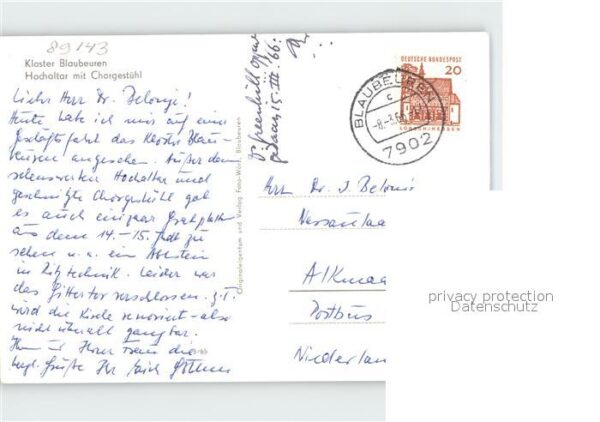 89143
Kloster Blaubeuren
Hochaltar mit Chorgestühl
Lieber Herr Dr. Belonje!
Heute habe ich mir auf einer
Geschäftsfahrt das Kloster Blau-
beuren angesehen. Außer dem
sehenswerten Hochaltar und
geschnitzte Chorgestühl gab
es auch ein paar Grabplatten
aus dem 14.-15. Jhdt zu
sehen u. a. ein
in Ritztechnik. Leider war
das Gittertor verschlossen. z.T.
wird die Kirche renoviert - also
nicht überall gangbar.
Ihnen u. Ihrer Frau die
herzl. Grüße Ihr Erich
Originaleigentum und Verlag Foto-Wörz, Blaubeuren
15. III. 66
DEUTSCHE BUNDESPOST
20
LORSCH/HESSEN
BLAUBEUREN
c
-8.-3.66
7902
Herrn Dr. J. Belonje
Alkmaa
Postbus
Niederlan
privacy protection
Datenschutz